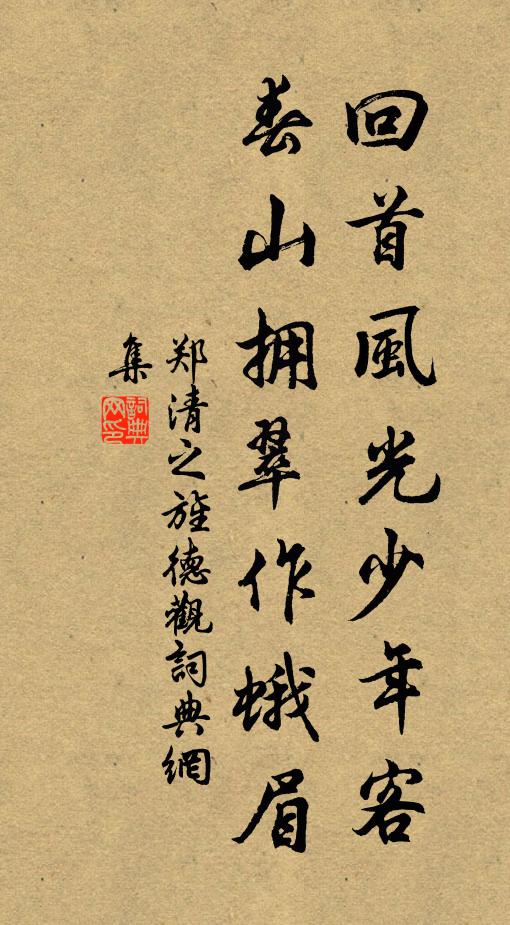 回首風光少年客
春山拥翠作蛾眉
郑清之旌德觀詞典網
集
詞典网印